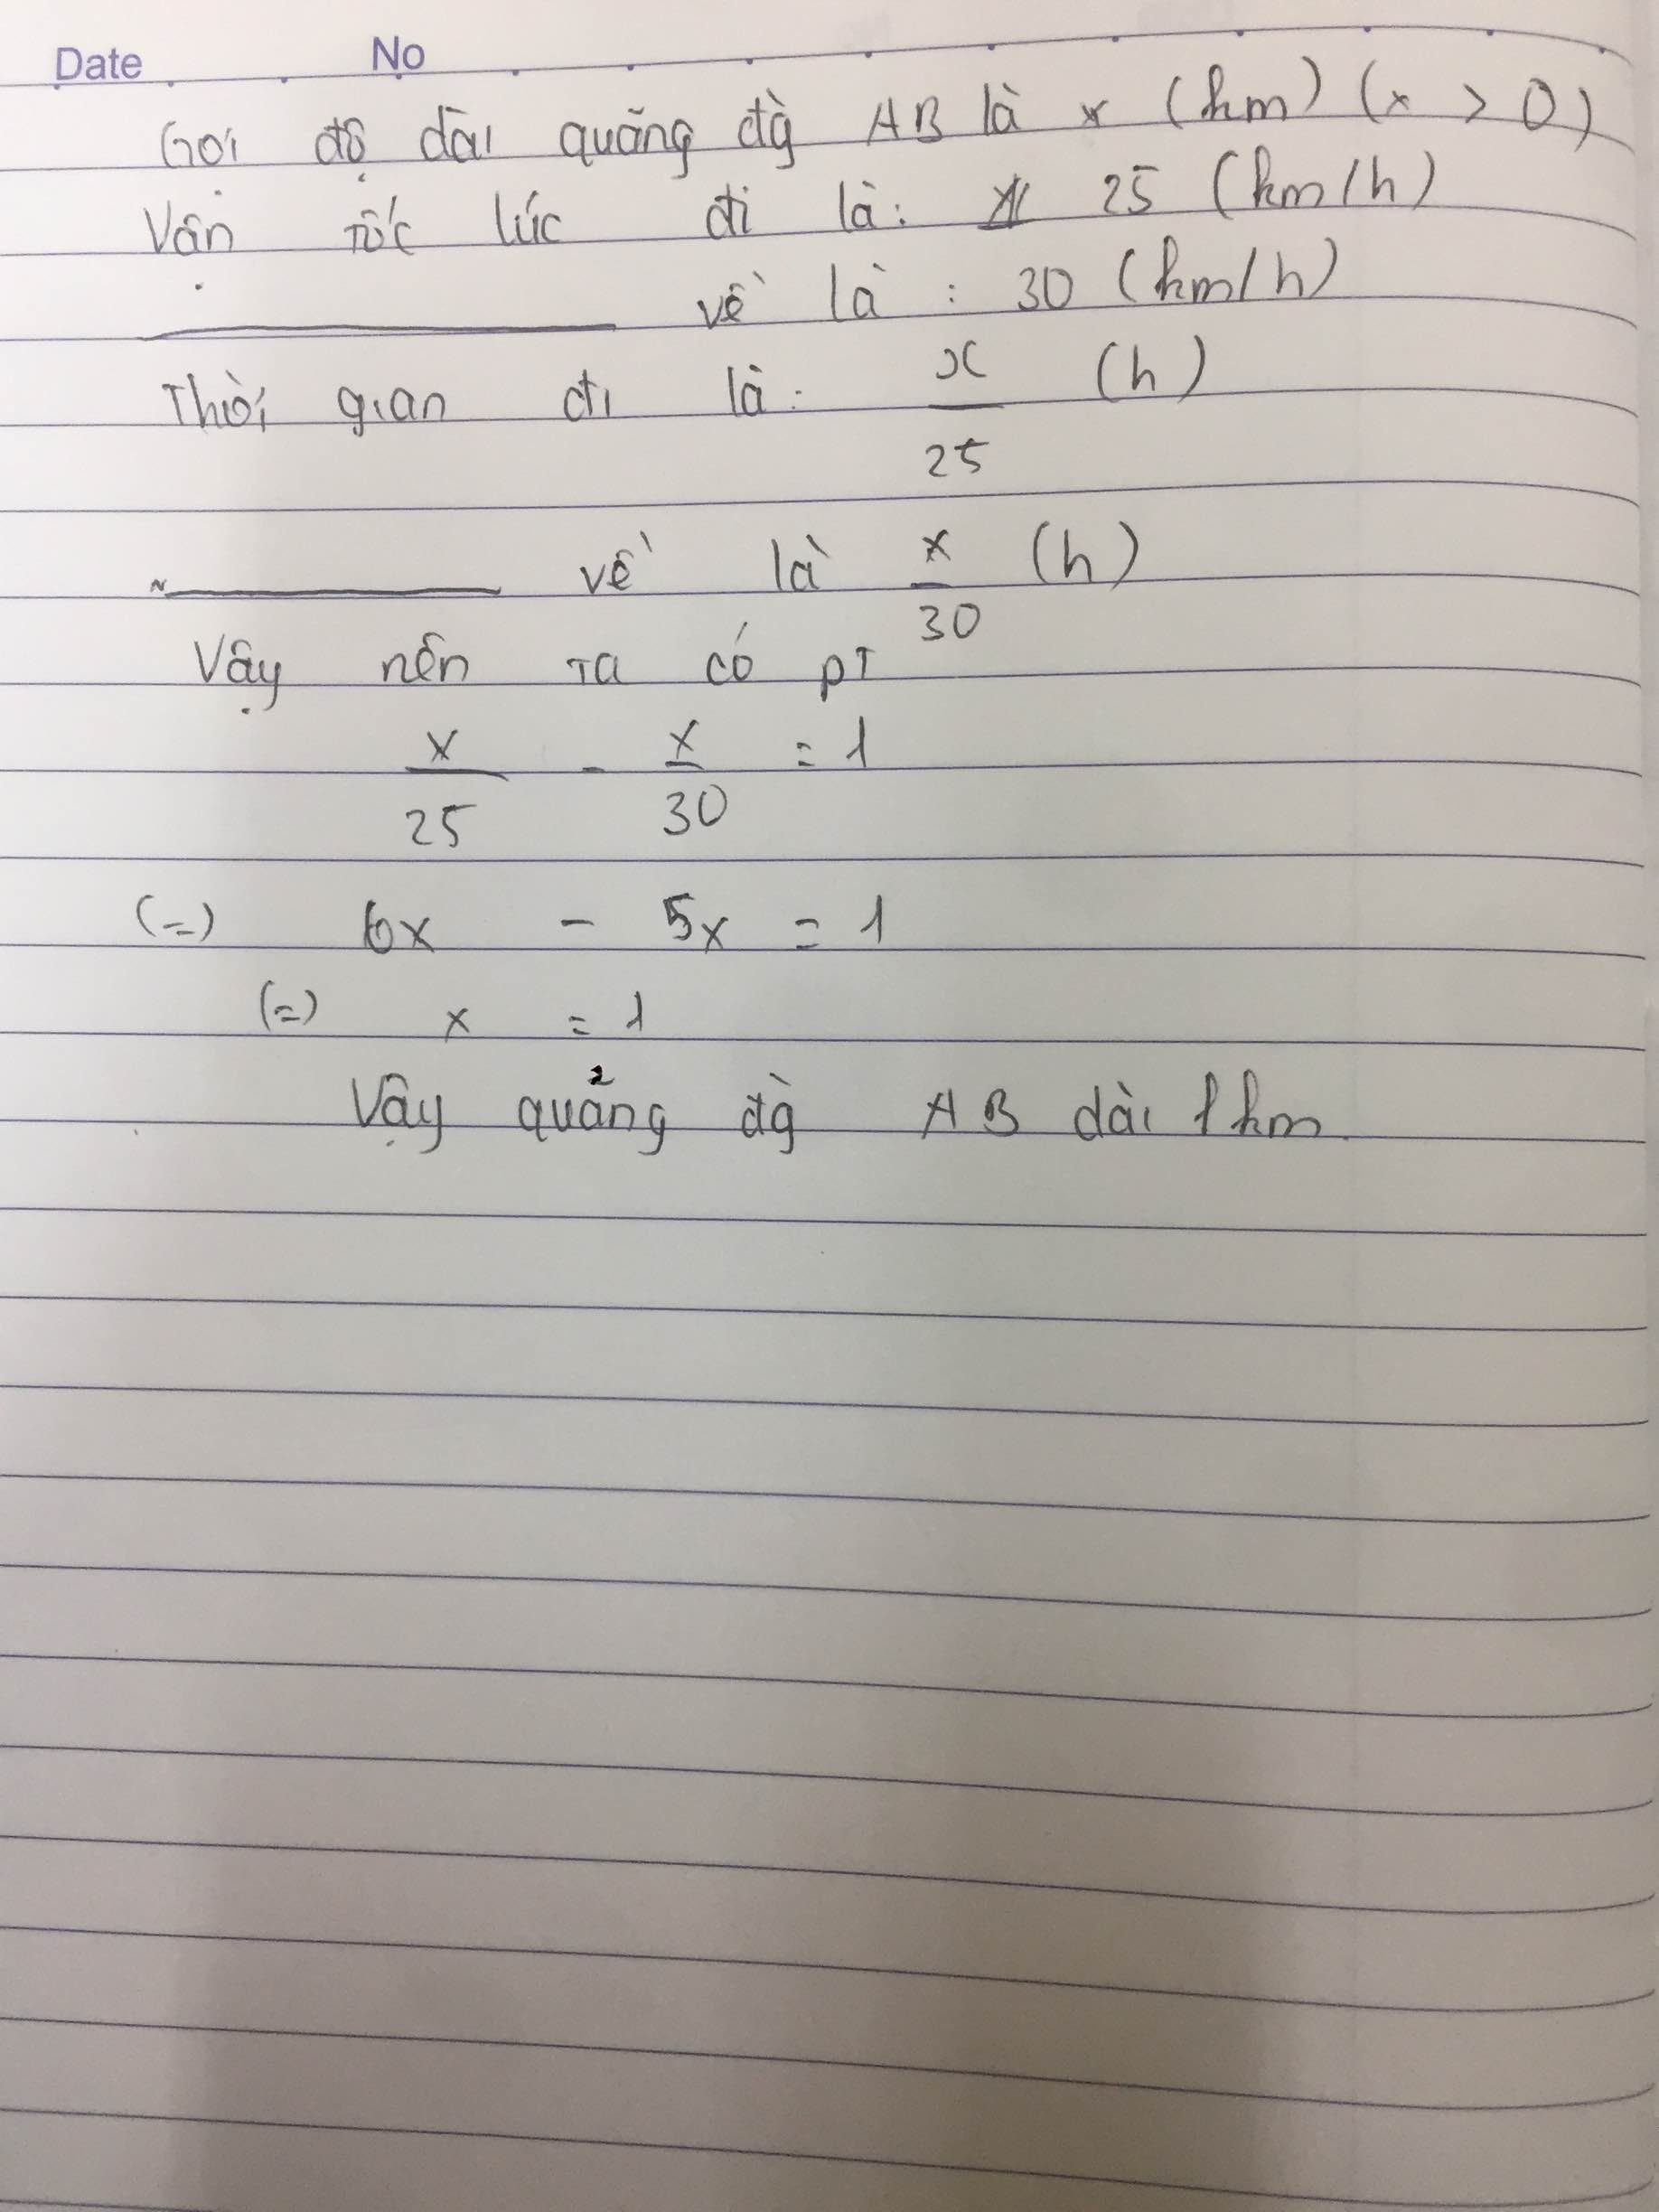 Date No
Gọi độ dài quãng đg̀ AB là x (km) (x > 0)
Vận tốc lúc đi là: 25 (km/h)
về là : 30 (km/h)
Thời gian đi là: x/25 (h)
về là x/30 (h)
Vậy nên ta có pT
x/25 - x/30 = 1
(=) 6x - 5x = 1
(=) x = 1
Vậy quảng đg̀ AB dài 1km.